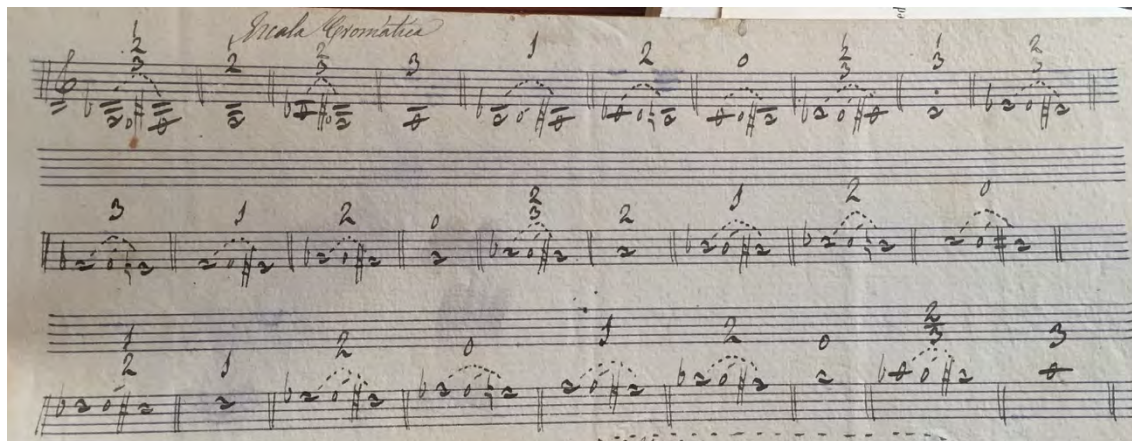 Escala Cromática
1 2 3 2 2 3 3 1 2 0 1 2 3 1 3 2 3
3 1 2 0 2 3 2 1 2 0
1 2 1 2 0 1 2 0 2 3 3